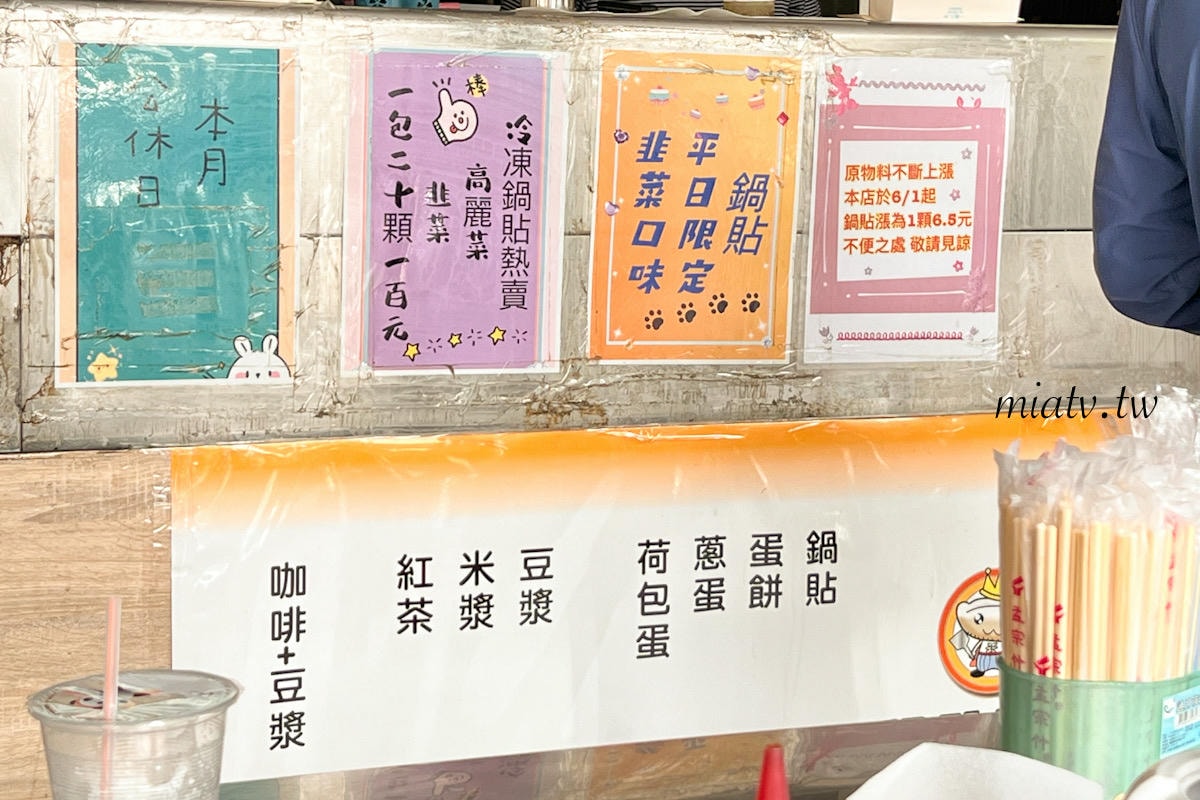 本月
公休日
棒
冷凍鍋貼熱賣
高麗菜
韭菜
一包二十顆一百元
鍋貼
平日限定
韭菜口味
原物料不斷上漲
本店於6/1起
鍋貼漲為1顆6.5元
不便之處 敬請見諒
miatv.tw
鍋貼
蛋餅
蔥蛋
荷包蛋
豆漿
米漿
紅茶
咖啡+豆漿
孟宗竹
孟宗
孟宗竹